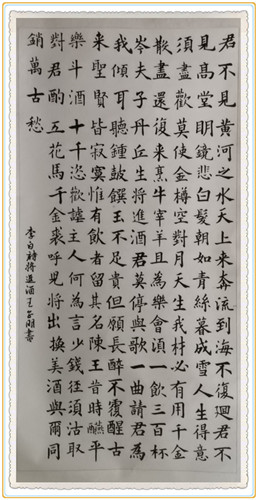 君不見黃河之水天上来奔流到海不復迴君不
見高堂明鏡悲白髮朝如青絲暮成雪人生得意
須盡歡莫使金樽空對月天生我材必有用千金
散盡還復来烹牛宰羊且為樂會須一飲三百杯
岑夫子丹丘生將進酒君莫停與歌一曲請君為
我傾耳聽鍾鼓饌玉不足貴但願長醉不覆醒古
来聖賢皆寂寞惟有飲者留其名陳王昔時讌平
樂斗酒十千恣歡謔主人何為言少錢徑須沽取
對君酌五花馬千金裘呼兒將出換美酒與爾同
銷萬古愁
李白詩將進酒王書